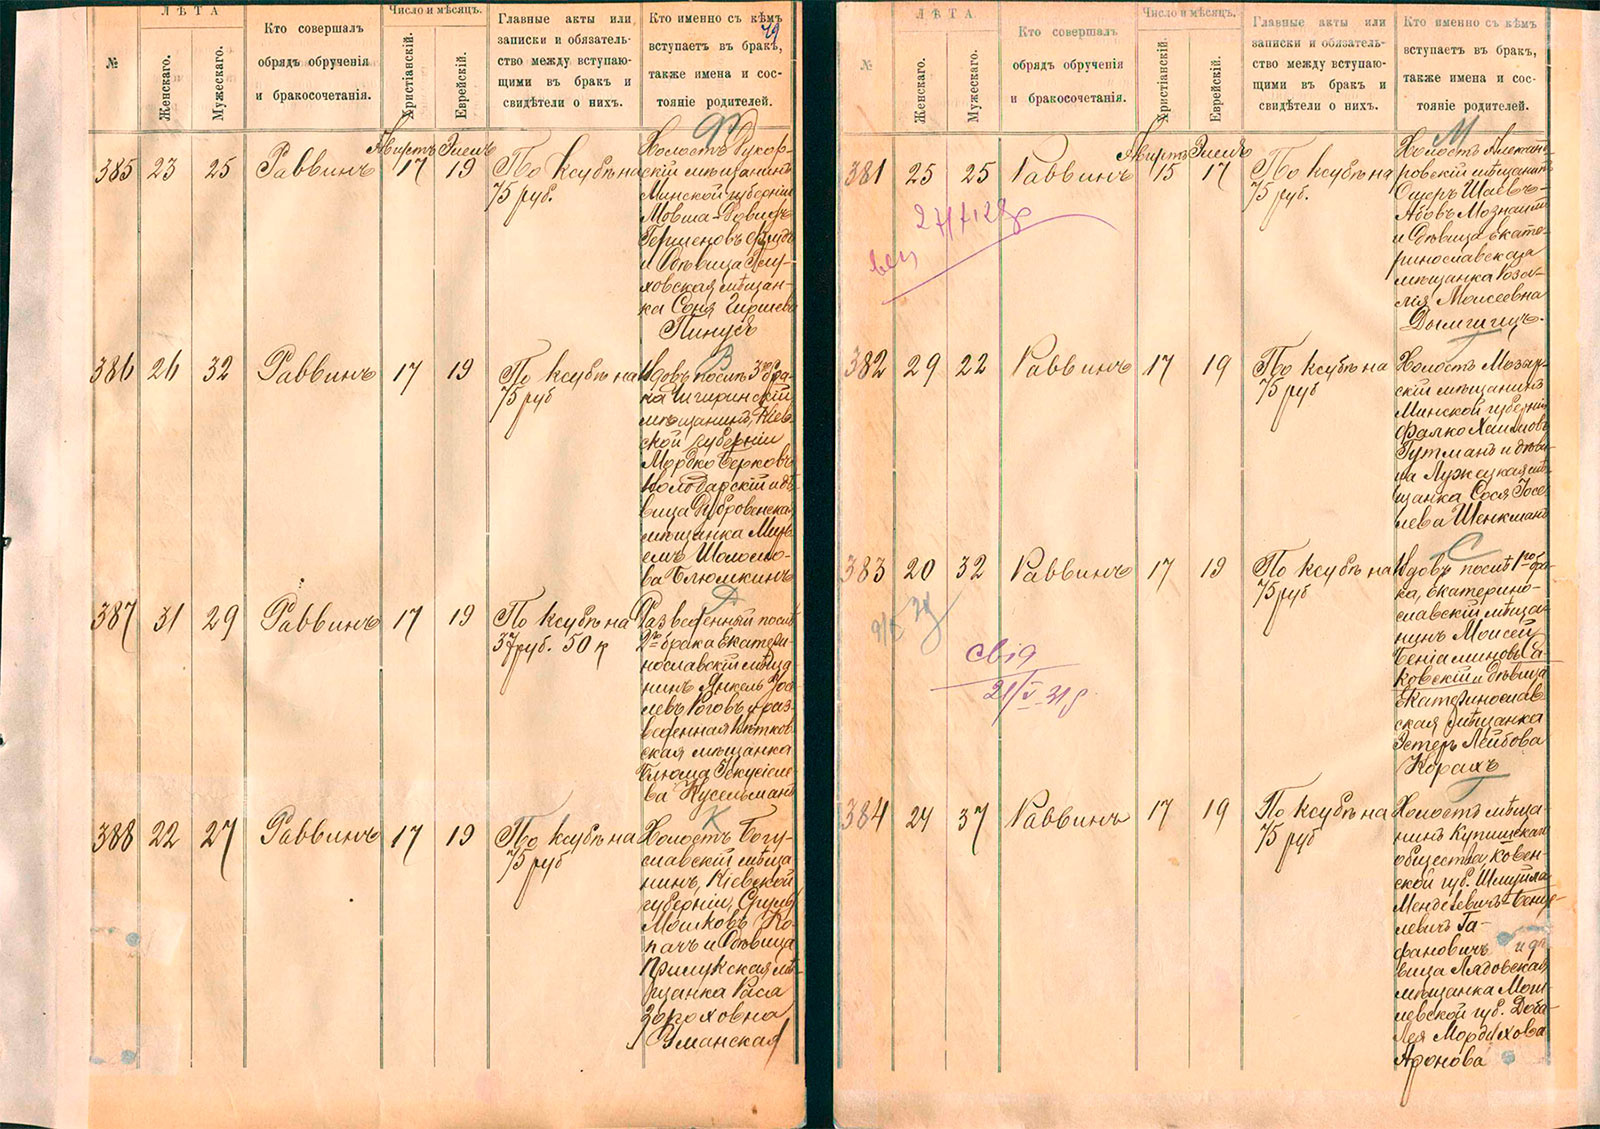 49
№
ЛѢТА
Женскаго.
Мужескаго.
Кто совершалъ
обрядъ обрученія
и бракосочетанія.
Число и мѣсяцъ.
Христіанскій.
Еврейскій.
Главные акты или
записки и обязатель-
ство между вступаю-
щими въ бракъ и
свидѣтели о нихъ.
Кто именно съ кѣмъ
вступаетъ въ бракъ,
также имена и сос-
тояніе родителей.
Августъ Элелъ
385 23 25 Раввинъ 17 19 По ксубѣ на
75 руб.
Ф
Холостъ Дукор-
скій мѣщанинъ
Минской губерніи
Мовша-Довидъ
Гершеновъ Фридъ
и дѣвица Глу-
ховская мѣщан-
ка Соня Гиршева
Пинусъ
386 26 32 Раввинъ 17 19 По ксубѣ на
75 руб
В
Вдовъ послѣ 3го бра-
ка
мѣщанинъ, Кіев-
ской губерніи
Мордко Берковъ
Володарскій и дѣ-
вица Дубровенская
мѣщанка Мирь-
емъ Шоломо-
ва Блюмкинъ
387 31 29 Раввинъ 17 19 По ксубѣ на
37 руб. 50 к
Разведенный послѣ
2го брака Екатери-
нославскій мѣща-
нинъ Янкель Іос-
левъ Роговъ и раз-
веденная
ская мѣщанка
Блюма
ва Кусельманъ
388 22 27 Раввинъ 17 19 По ксубѣ на
75 руб
К
Холостъ Богу-
славскій мѣща-
нинъ, Кіевской
губерніи, Сруль
Мошковъ Ко-
пачъ и дѣвица
Прилукская мѣ-
щанка Раса
Зороховна
Уманская
№
ЛѢТА
Женскаго.
Мужескаго.
Кто совершалъ
обрядъ обрученія
и бракосочетанія.
Число и мѣсяцъ.
Христіанскій.
Еврейскій.
Главные акты или
записки и обязатель-
ство между вступаю-
щими въ бракъ и
свидѣтели о нихъ.
Кто именно съ кѣмъ
вступаетъ въ бракъ,
также имена и сос-
тояніе родителей.
Августъ Элелъ
381 25 25 Раввинъ 15 17 По ксубѣ на
75 руб.
М
Холостъ Александ-
ровскій мѣщанинъ
Ошеръ Шаевъ-
Абовъ Мознаимъ
и дѣвица Екате-
ринославская
мѣщанка Роза-
лія Моисеевна
382 29 22 Раввинъ 17 19 По ксубѣ на
75 руб
Г
Холостъ Мозыр-
скій мѣщанинъ
Минской губерніи
Фалко Хаимовъ
Гутманъ и дѣви-
ца Лужецкая мѣ-
щанка Сося Іосе-
лева Шенкманъ
383 20 32 Раввинъ 17 19 По ксубѣ на
75 руб
свід
21/V 31 р.
С
Вдовъ послѣ 1го бра-
ка, Екатерино-
славскій мѣща-
нинъ Моисей
Беніаминовъ Са-
ковскій и дѣвица
Екатеринослав-
ская мѣщанка
Эстеръ Лейбова
Корахъ
384 24 37 Раввинъ 17 19 По ксубѣ на
75 руб
Г
Холостъ мѣща-
нинъ Купишскаго
общества, Ковен-
ской губ. Шмуйла
Менделевичъ-
левичъ Га-
фановичъ и дѣ-
вица Лядовская
мѣщанка Моги-
левской губ. Доба-
Лея Мордухова
Аронова